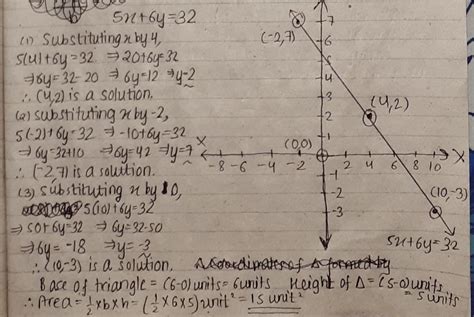 5x+6y=32
(1) Substituting x by 4,
5(4)+6y=32 ⇒20+6y=32
⇒6y=32-20 ⇒6y=12 ⇒y=2
∴ (4,2) is a solution.
(2) substituting x by -2,
5(-2)+6y=32 ⇒-10+6y=32
⇒6y=32+10 ⇒6y=42 ⇒y=7
∴ (-2,7) is a solution.
(3) substituting x by 10,
5(10)+6y=32
⇒50+6y=32 ⇒6y=32-50
⇒6y=-18 ⇒y=-3
∴ (10,-3) is a solution.
Base of triangle = (6-0)units = 6units Height of Δ = (5-0)units
= 5 units
∴ Area = ½×b×h = (½×6×5)unit² = 15 unit²
(-2,7)
7
6
5
4
3
(4,2)
2
1
(0,0)
X -8 -6 -4 -2 2 4 6 8 10 X
-1
-2
(10,-3)
-3
5x+6y=32